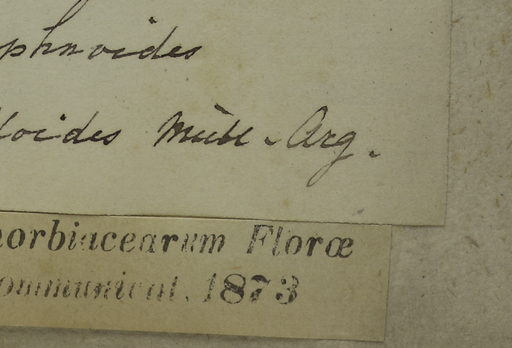 phnoides
loides Müll-Arg.
orbiacearum Floræ
ommunicat. 1873